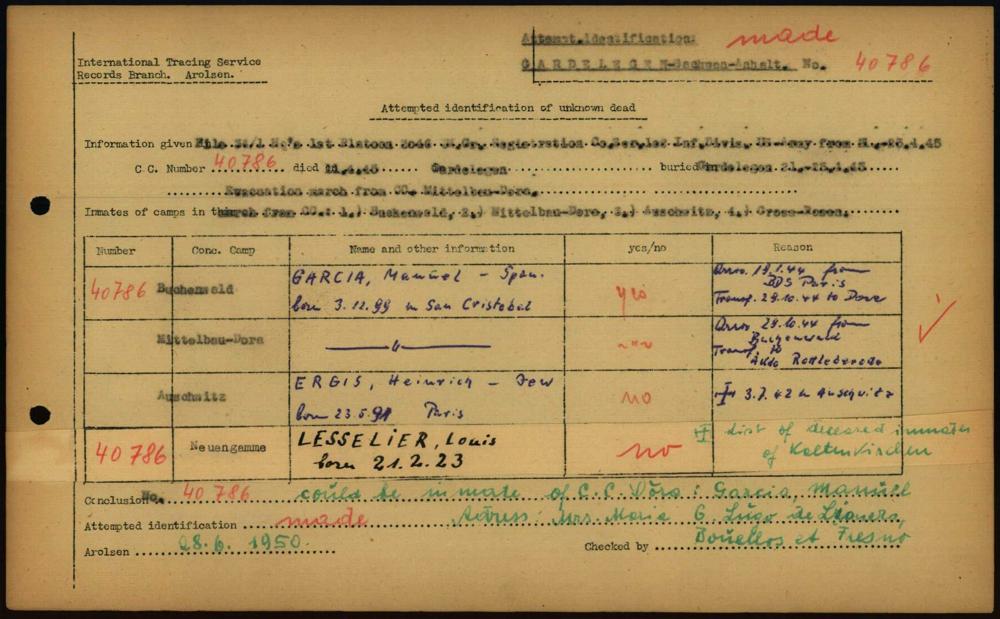 International Tracing Service
Records Branch. Arolsen.
Attempt.Identification: made
GARDELEGEN-Sachsen-Anhalt. No. 40786
Attempted identification of unknown dead
Information given File 34/1 Hq's 1st Platoon 3046 Registration Inf.Divis. US-Army from 21.-25.4.45
C.C. Number 40786 died Gardelegen buried Gardelegen 21.-25.4.45
Evacuation march from CC. Mittelbau-Dora.
Inmates of camps in the march from CC.: 1.) Buchenwald, 2.) Mittelbau-Dora, 3.) Auschwitz, 4.) Gross-Rosen.
Number Conc. Camp Name and other information yes/no Reason
40786 Buchenwald GARCIA, Manuel – Span. born 3.12.99 in San Cristobal yes Arrv. 19.1.44 from BDS Paris Transf. 29.10.44 to Dora
Mittelbau-Dora —"— Arrv. 29.10.44 from Buchenwald Transf. to Akdo Rottleberode
Auschwitz ERGIS, Heinrich – Jew born Paris no 3.7.42 in Auschwitz
40786 Neuengamme LESSELIER, Louis born 21.2.23 no List of deceased inmates of Kaltenkirchen
Conclusion No. 40786 could be inmate of C.C. Dora: Garcia, Manuel
Attempted identification made Adress: Mrs. Maria G. Lugo de
Arolsen 28.6.1950. Checked by et Fresno